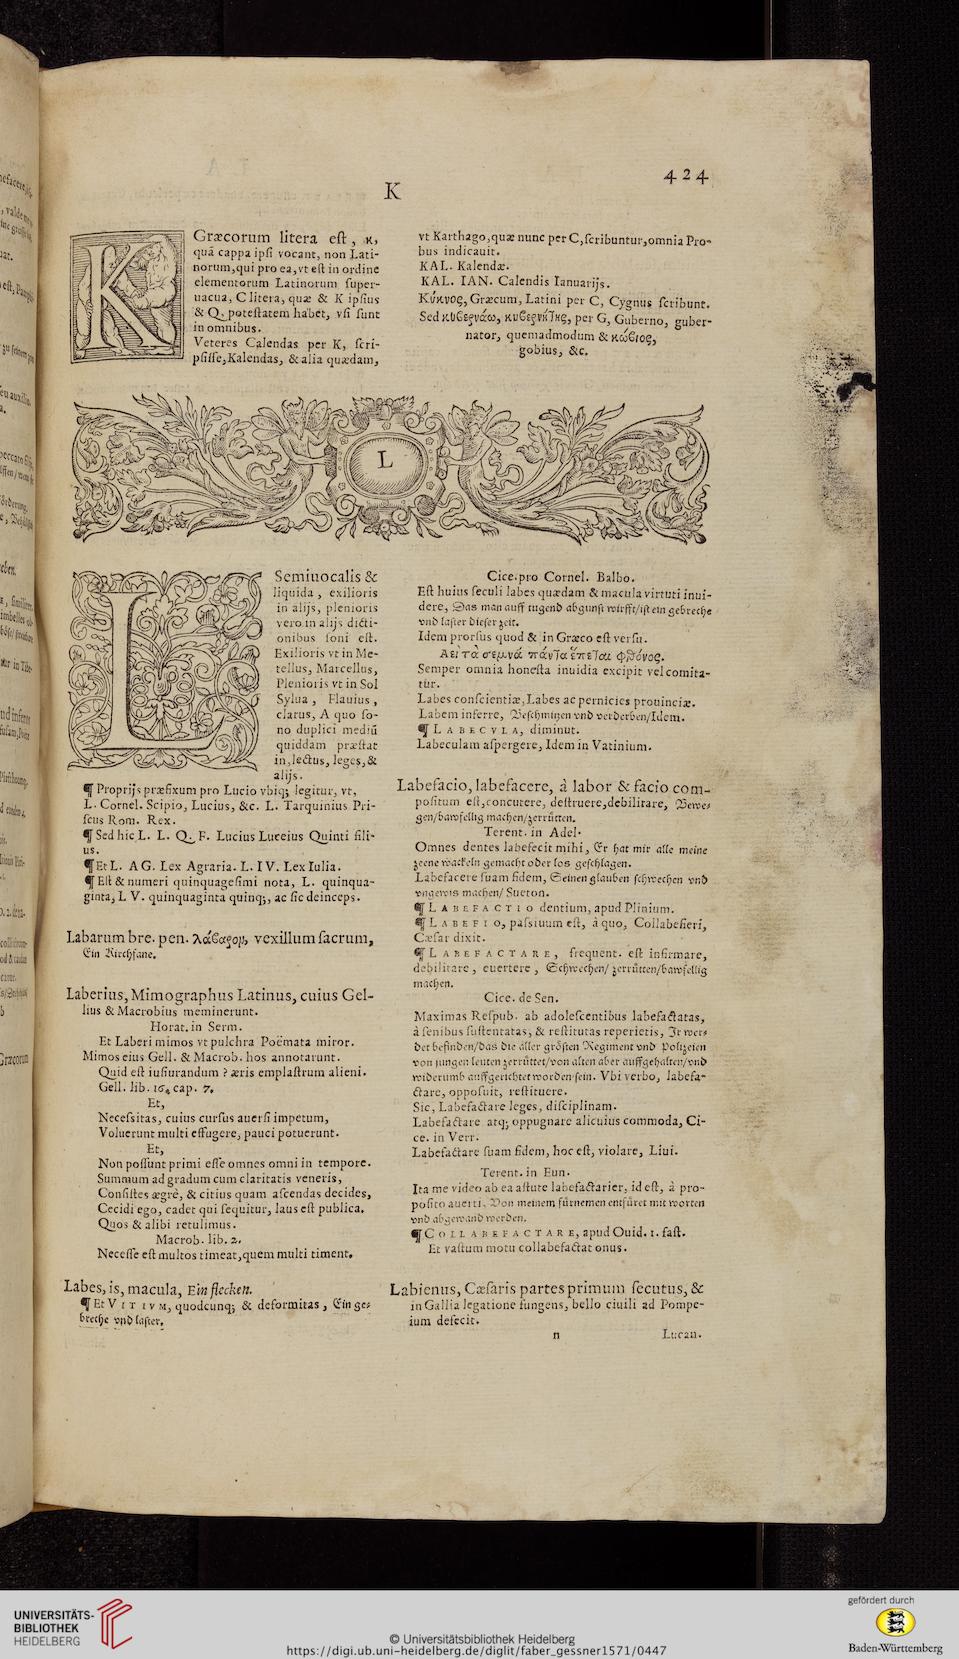 K
424
K Græcorum litera eſt, κ,
quã cappa ipſi vocant, non Lati-
norum,qui pro ea,vt eſt in ordine
elementorum Latinorum ſuper-
uacua, C litera, quæ & K ipſius
& Q. poteſtatem habet, vſi ſunt
in omnibus.
Veteres Calendas per K, ſcri-
pſiſſe,Kalendas, & alia quædam,
vt Karthago,quæ nunc per C,ſcribuntur,omnia Pro-
bus indicauit.
KAL. Kalendæ.
KAL. IAN. Calendis Ianuarijs.
Κύκνος, Græcum, Latini per C, Cygnus ſcribunt.
Sed κυβερνάω, κυβερνήτης, per G, Guberno, guber-
nator, quemadmodum & κώβιος,
gobius, &c.
L
L Semiuocalis &
liquida, exilioris
in alijs, plenioris
vero in alijs dicti-
onibus ſoni eſt.
Exilioris vt in Me-
tellus, Marcellus,
Plenioris vt in Sol
Sylua, Flauius,
clarus, A quo ſo-
no duplici mediũ
quiddam præſtat
in,lectus, leges,&
alijs.
¶ Proprijs præfixum pro Lucio vbiq; legitur, vt,
L. Cornel. Scipio, Lucius, &c. L. Tarquinius Pri-
ſcus Rom. Rex.
¶ Sed hic L. L. Q. F. Lucius Luceius Quinti fili-
us.
¶ Et L. AG. Lex Agraria. L. IV. Lex Iulia.
¶ Eſt & numeri quinquageſimi nota, L. quinqua-
ginta, L V. quinquaginta quinq;, ac ſic deinceps.
Labarum bre. pen. λάβαρον, vexillum ſacrum,
Ein Kirchfane.
Laberius, Mimographus Latinus, cuius Gel-
lius & Macrobius meminerunt.
Horat. in Serm.
Et Laberi mimos vt pulchra Poëmata miror.
Mimos eius Gell. & Macrob. hos annotarunt.
Quid eſt iuſiurandum ? æris emplaſtrum alieni.
Gell. lib. 16. cap. 7.
Et,
Neceſsitas, cuius curſus auerſi impetum,
Voluerunt multi effugere, pauci potuerunt.
Et,
Non poſſunt primi eſſe omnes omni in tempore.
Summum ad gradum cum claritatis veneris,
Conſiſtes ægrè, & citius quam aſcendas decides,
Cecidi ego, cadet qui ſequitur, laus eſt publica.
Quos & alibi retulimus.
Macrob. lib. 2.
Neceſſe eſt multos timeat,quem multi timent.
Labes, is, macula, Ein flecken.
¶ Et VITIVM, quodcunq; & deformitas, Ein ge-
breche vnd laſter.
Cice. pro Cornel. Balbo.
Eſt huius ſeculi labes quædam & macula virtuti inui-
dere, Das man auff tugend abgunſt wirfft/iſt ein gebreche
vnd laſter dieſer zeit.
Idem prorſus quod & in Græco eſt verſu.
Ἀεὶ τὰ σεμνὰ πάντα ἕπεται φθόνος.
Semper omnia honeſta inuidia excipit vel comita-
tur.
Labes conſcientiæ, Labes ac pernicies prouinciæ.
Labem inferre, Beſchmitzen vnd verderben/Idem.
¶ LABECVLA, diminut.
Labeculam aſpergere, Idem in Vatinium.
Labefacio, labefacere, à labor & facio com-
poſitum eſt,concutere, deſtruere,debilitare, Bewe-
gen/bawfellig machen/zerrütten.
Terent. in Adel.
Omnes dentes labefecit mihi, Er hat mir alle meine
zeene wackeln gemacht oder los geſchlagen.
Labefacere ſuam fidem, Seinen glauben ſchwechen vnd
vngewis machen/ Sueton.
¶ LABEFACTIO dentium, apud Plinium.
¶ LABEFIO, paſsiuum eſt, à quo, Collabefieri,
Cæſar dixit.
¶ LABEFACTARE, frequent. eſt infirmare,
debilitare, euertere, Schwechen/ zerrütten/bawfellig
machen.
Cice. de Sen.
Maximas Reſpub. ab adoleſcentibus labefactatas,
à ſenibus ſuſtentatas, & reſtitutas reperietis, Jr wer-
det befinden/das die aller gröſten Regiment vnd Polizeien
von jungen leuten zerrüttet/von alten aber auffgehalten/vnd
widerumb auffgerichtet worden ſein. Vbi verbo, labefa-
ctare, oppoſuit, reſtituere.
Sic, Labefactare leges, diſciplinam.
Labefactare atq; oppugnare alicuius commoda, Ci-
ce. in Verr.
Labefactare ſuam fidem, hoc eſt, violare, Liui.
Terent. in Eun.
Ita me video ab ea aſtute labefactarier, id eſt, à pro-
poſito auerti. Von meinem fürnemen entfüret mit worten
vnd abgewand werden.
¶ COLLABEFACTARE, apud Ouid. 1. faſt.
Et vaſtum motu collabefactat onus.
Labienus, Cæſaris partes primum ſecutus, &
in Gallia legatione fungens, bello ciuili ad Pompe-
ium defecit.
n
Lucan.
UNIVERSITÄTS-
BIBLIOTHEK
HEIDELBERG
© Universitätsbibliothek Heidelberg
https://digi.ub.uni-heidelberg.de/diglit/faber_gessner1571/0447
gefördert durch
Baden-Württemberg